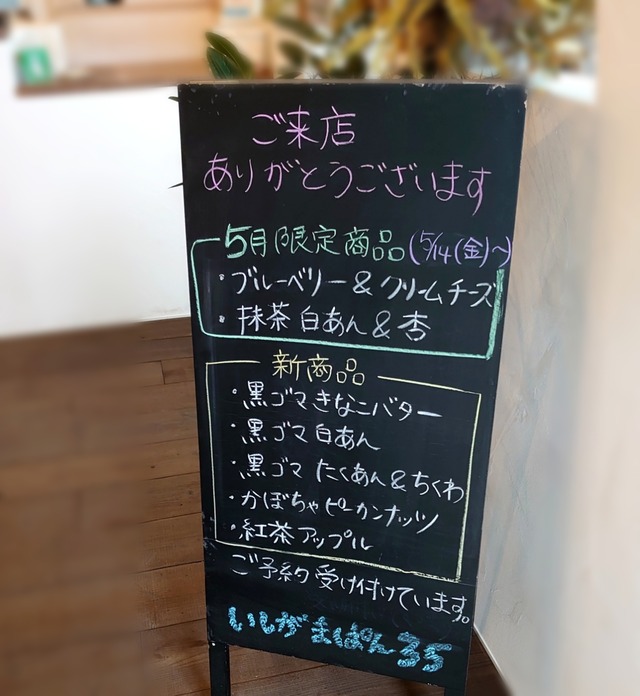 ご来店
ありがとうございます
5月限定商品(5/14(金)~)
・ブルーベリー&クリームチーズ
・抹茶白あん&杏
新商品
・黒ゴマきなこバター
・黒ゴマ白あん
・黒ゴマ たくあん&ちくわ
・かぼちゃピーカンナッツ
・紅茶アップル
ご予約受け付けています。
いしがまぱん35